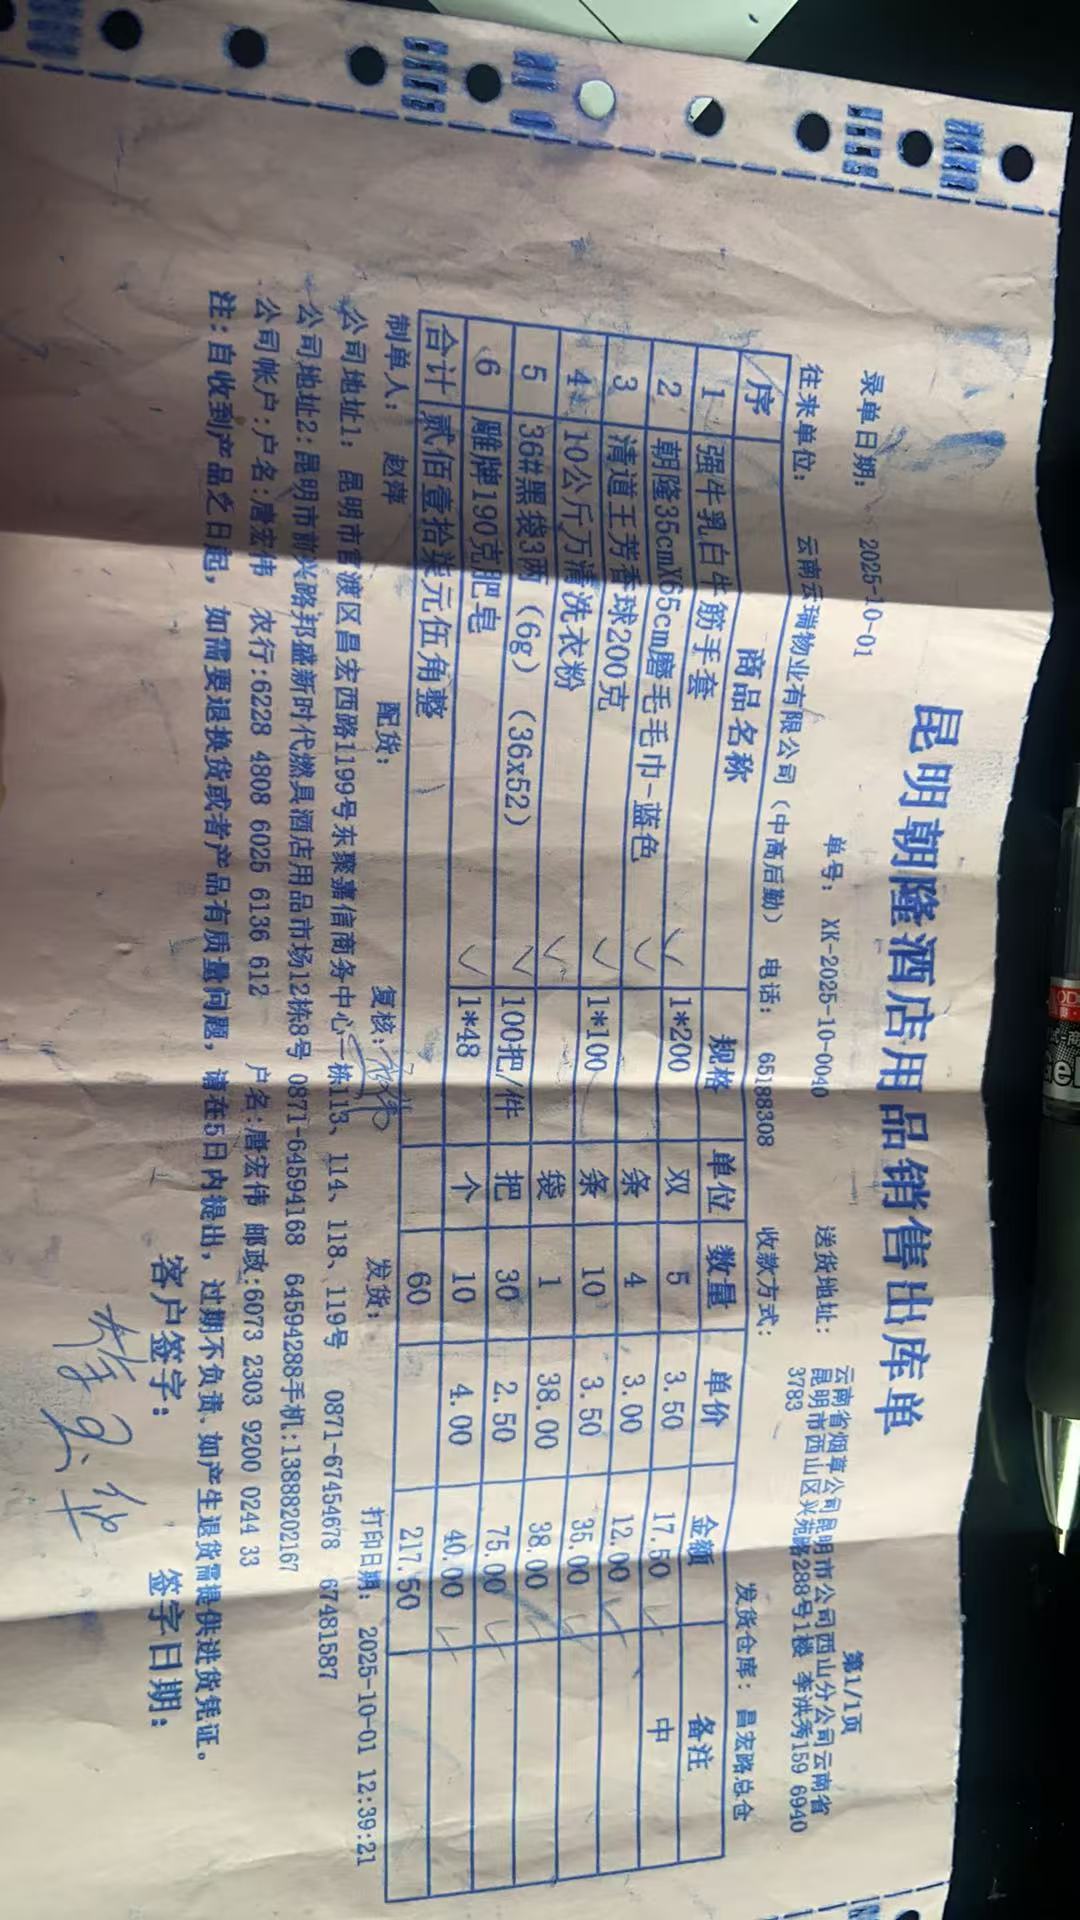 昆明朝隆酒店用品销售出库单
第1/1页
录单日期: 2025-10-01 单号: XK-2025-10-0040 送货地址: 云南省烟草公司昆明市公司西山分公司云南省
昆明市西山区兴苑路288号1楼 李洪秀159 6940
3783
往来单位: 云南云瑞物业有限公司(中高后勤) 电话: 65188308 收款方式: 发货仓库: 昌宏路总仓
序 商品名称 规格 单位 数量 单价 金额 备注
1 强牛乳白牛筋手套 1*200 双 5 3.50 17.50 中
2 朝隆35cmX65cm磨毛毛巾-蓝色 条 4 3.00 12.00
3 清道王芳香球200克 1*100 条 10 3.50 35.00
4 10公斤万清洗衣粉 袋 1 38.00 38.00
5 36#黑袋3两(6g)(36x52) 100把/件 把 30 2.50 75.00
6 雕牌190克肥皂 1*48 个 10 4.00 40.00
合计 贰佰壹拾柒元伍角整 60 217.50
制单人: 赵萍 配货: 复核: 发货: 打印日期: 2025-10-01 12:39:21
公司地址1: 昆明市官渡区昌宏西路1199号东聚嘉信商务中心一栋113、114、118、119号 0871-67454678 67481587
公司地址2:昆明市前兴路邦盛新时代燃具酒店用品市场12栋8号 0871-64594168 64594288手机:13888202167
公司帐户:户名:唐宏伟 农行:6228 4808 6025 6136 612 户名:唐宏伟 邮政:6073 2303 9200 0244 33
注:自收到产品之日起,如需要退换货或者产品有质量问题,请在5日内提出,过期不负责、如产生退货需提供进货凭证。
客户签字: 签字日期: